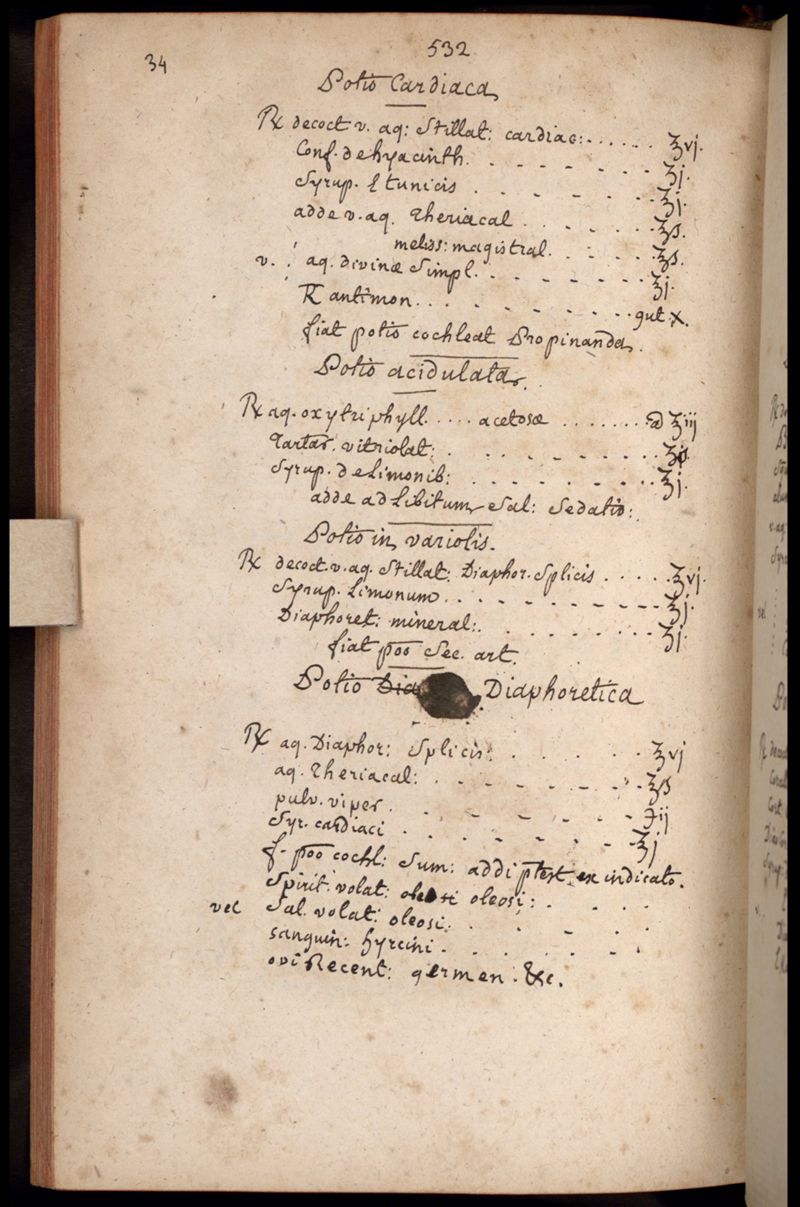 532
34
Potio Cardiaca
℞ decoct v. aq: Stillat: cardiac: ...... ℥vj.
Conf. de hyacinth. . . . . . . . ʒj.
Syrup. E tunicis . . . . . . ℥j.
adde v. aq. Theriacal . . . . . . ℥ß.
meliss: magistral . . . . . ℥ß.
v. : aq. divinæ Simpl. . . . . . . ℥j.
Tr antimon . . . . . . . . . gut. x.
fiat potio cochleat Propinanda.
Potio acidulata.
℞ aq. oxytriphyll. .... acetosæ ....... a ℥iij
Tartar. vitriolat: . . . . . . . . ʒß
Syrup. de Limonib: . . . . . . . . ℥j.
adde ad Libitum Sal: Sedativ:
Potio in variolis.
℞ decoct. v. aq. Stillat: Diaphor. Splicis ..... ℥vj.
Syrup. Limonum . . . . . . . . . ℥j.
Diaphoret: mineral: . . . . . . . . ʒj.
fiat poō Sec. art.
Potio Dia Diaphoretica
℞ aq. Diaphor: Splicis: . . . . . ℥vj
aq. Theriacal: . . . . . . . ℥ß
pulv. viper . . . . . . ℈ij
Syr. cardiaci . . . . . . . ℥j
f. poō cochl: Sum: addi ptest ex indicato.
Spirit. volat: oleosi oleosi: . . . .
vel Sal. volat: oleosi. . . . . .
sanguin: hyrcini . . . . . . .
ovi Recent: germen. &c.